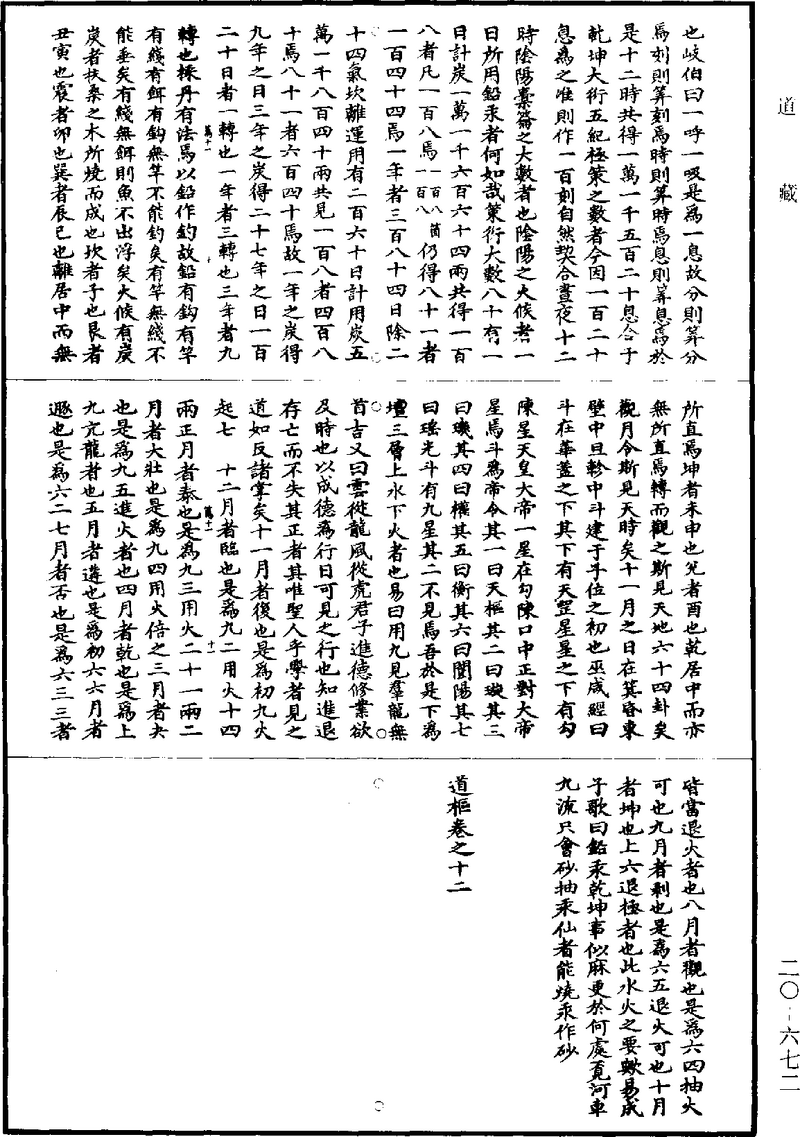 道藏
也岐伯曰一呼一吸是爲一息故分則算分
爲刻則算刻爲時則算時爲息則算息焉於
是十二時共得一萬一千五百二十息合于
乾坤大衍五紀極策之數者今因一百二十
息爲之唯則作一百刻自然契合晝夜十二
時陰陽橐籥之大數者也陰陽之火候者一
日所用鉛汞者何如哉策衍大數八十有一
日計炭一萬一千六百六十四兩共得一百
八者凡一百八焉一百八箇一百八仍得八十一者
一百四十四焉一年者三百八十四日除二
十四氣坎離運用有二百六十日計用炭五
萬一千八百四十兩共見一百八者四百八
十焉八十一者六百四十焉故一年之炭得
九年之日三年之炭得二十七年之日一百
二十日者一轉也一年者三轉也三年者九
轉也採丹有法焉以鉛作釣故鉛有鈎有竿
有綫有餌有鈎無竿不能釣矣有竿無綫不
能垂矣有綫無餌則魚不出浮矣火候有炭
炭者扶桑之木所燒而成也坎者子也艮者
丑寅也震者卯也巽者辰巳也離居中而無
所直焉坤者未申也兌者酉也乾居中而亦
無所直焉轉而觀之斯見天地六十四卦矣
觀月令斯見天時矣十一月之日在箕昏東
壁中旦軫中斗建于斗位之初也巫咸經曰
斗在華蓋之下其下有天罡星星之下有勾
陳星天皇大帝一星在勾陳口中正對大帝
星焉斗爲帝令其一曰天樞其二曰璇其三
曰璣其四曰權其五曰衡其六曰闓陽其七
曰瑤光斗有九星其二不見焉吾於是下爲
壇三層上水下火者也易曰用九見羣龍無
首吉又曰雲從龍風從虎君子進德修業欲
及時也以成德爲行日可見之行也知進退
存亡而不失其正者其唯聖人乎學者見之
道如反諸掌矣十一月者復也是爲初九火
起七 十二月者臨也是爲九二用火十四
兩正月者泰也是爲九三用火二十一兩二
月者大壯也是爲九四用火倍之三月者夬
也是爲九五進火者也四月者乾也是爲上
九亢龍者也五月者遘也是爲初六六月者
遯也是爲六二七月者否也是爲六三三者
皆當退火者也八月者觀也是爲六四抽火
可也九月者剝也是爲六五退火可也十月
者坤也上六退極者也此水火之要歟易成
子歌曰鉛汞乾坤事似麻更於何處覓河車
九流只會砂抽汞仙者能燒汞作砂
道樞卷之十二
二〇-六七二